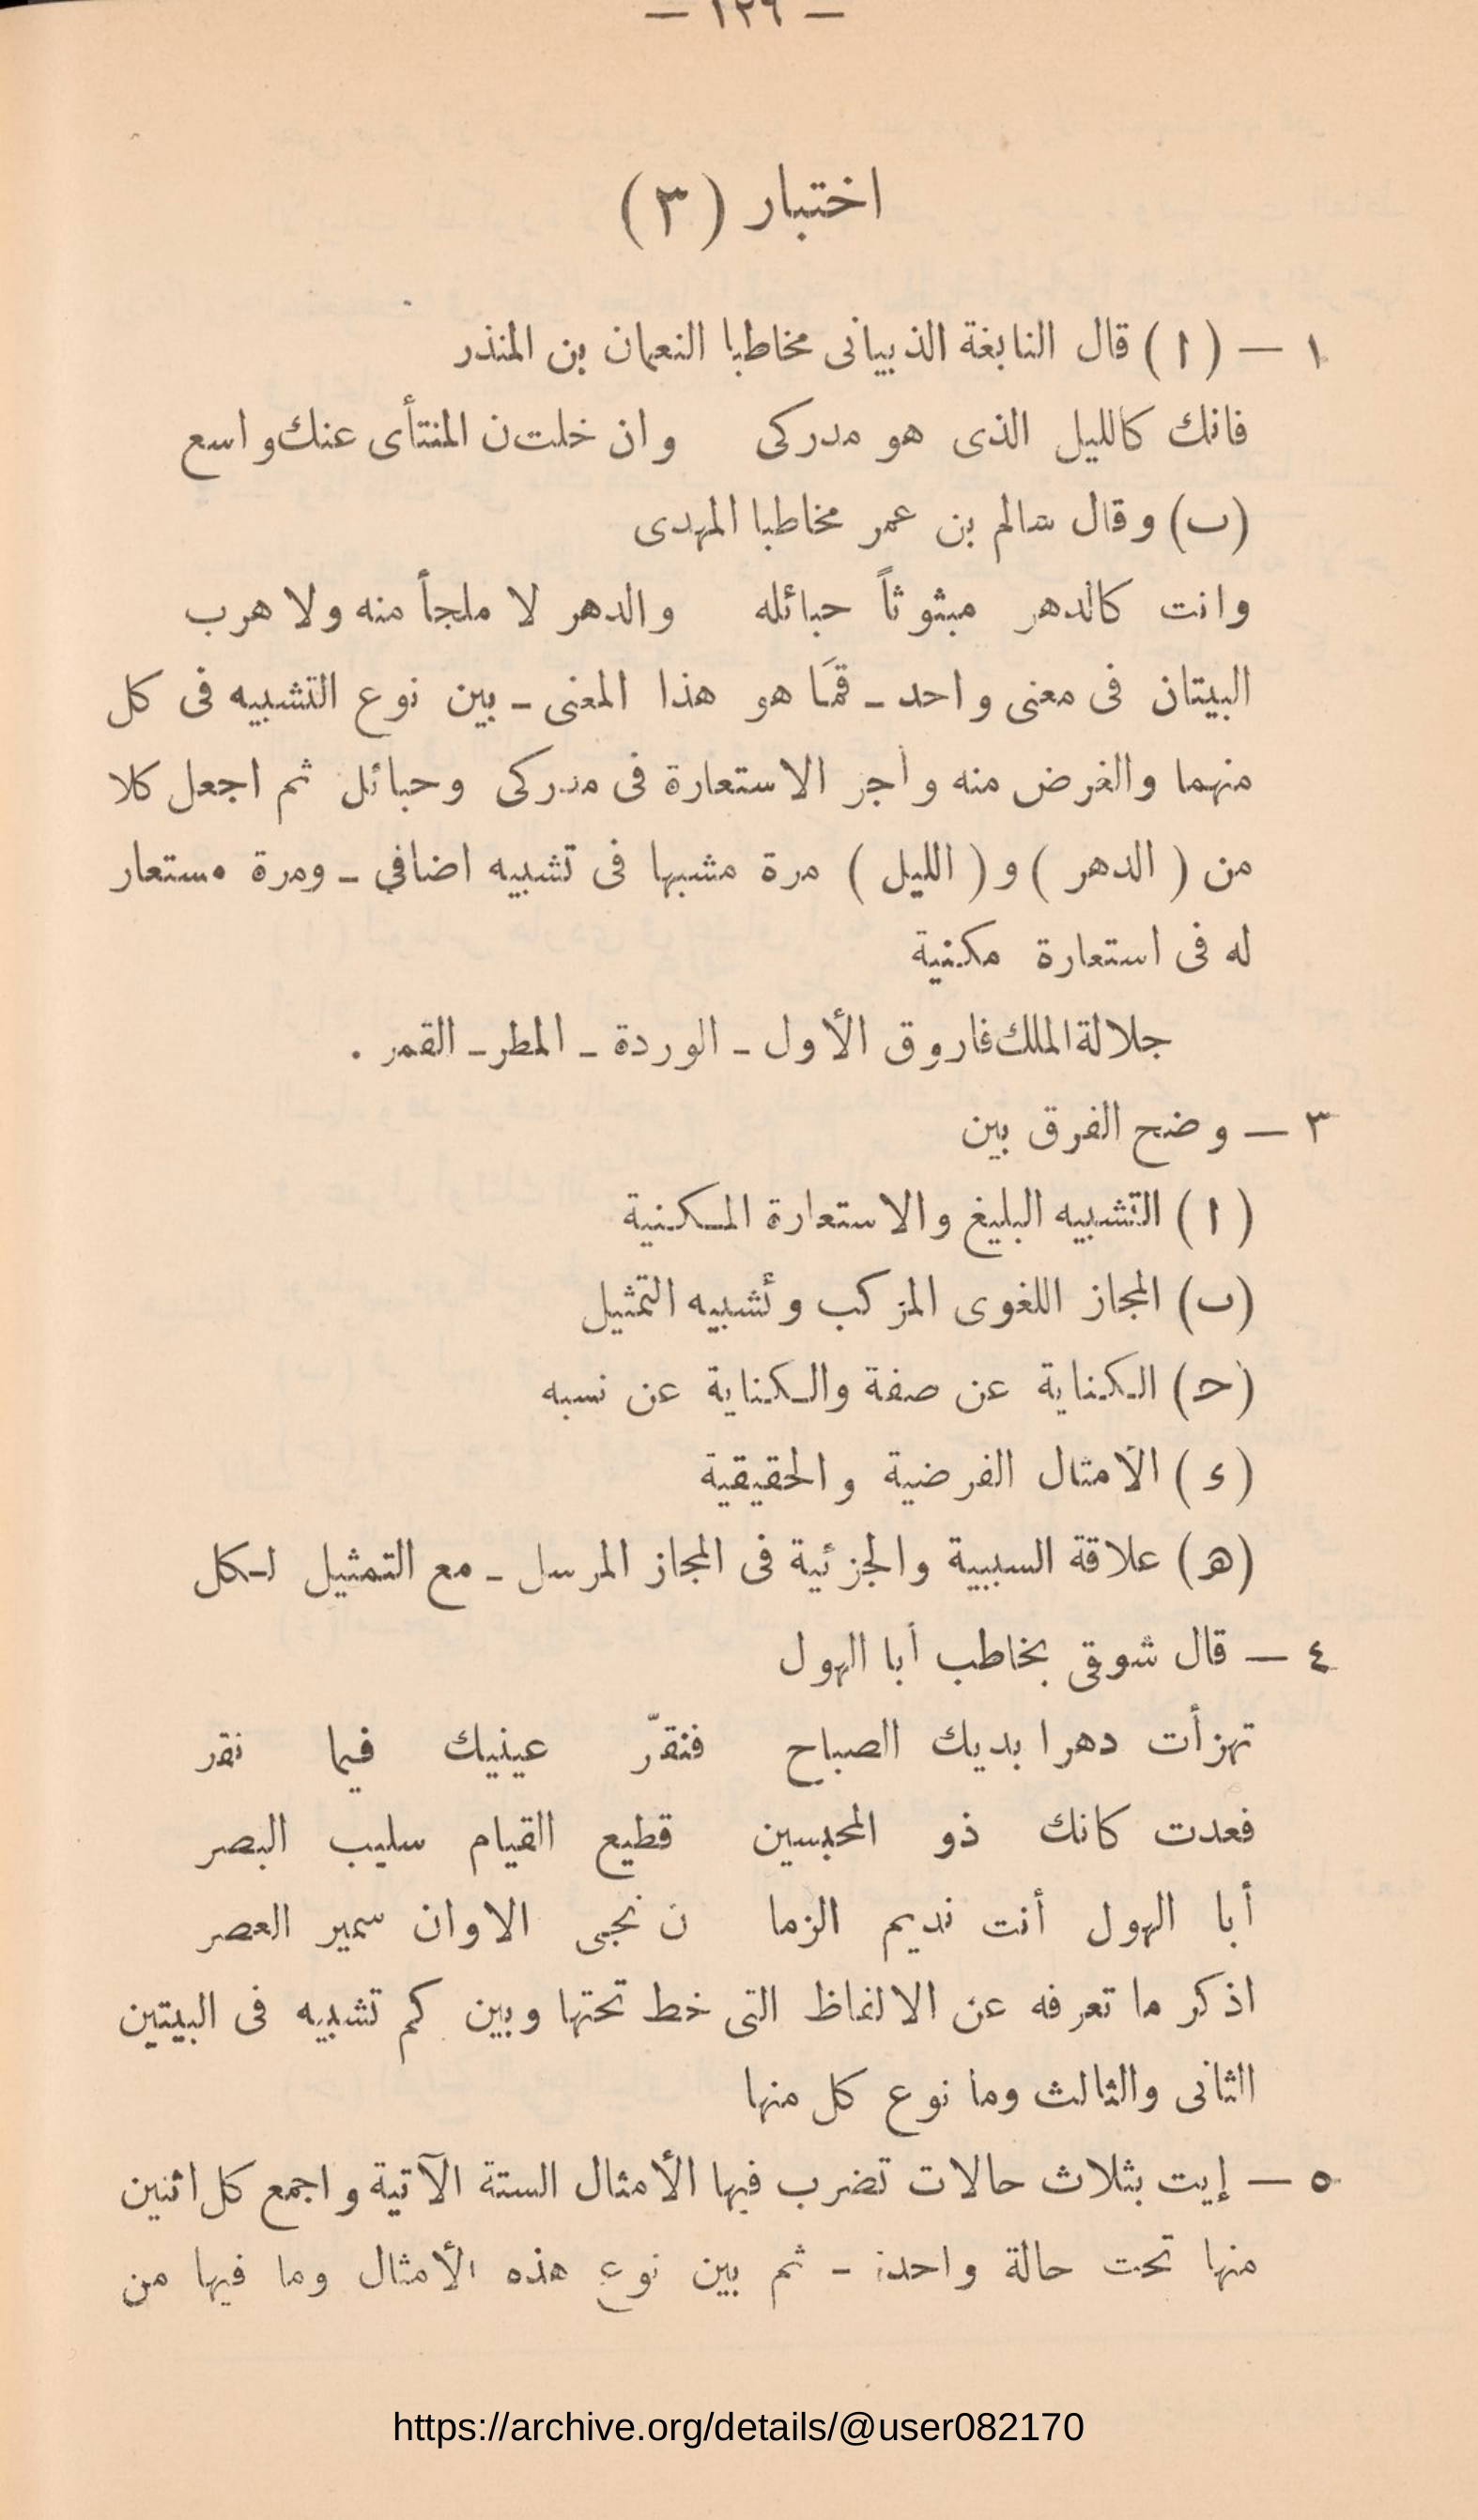 — ١٢٦ —
اختبار ( ٣ )
١ — ( ا ) قال النابغة الذبيانى مخاطبا النعمان بن المنذر
فانك كالليل الذى هو مدركى وان خلت ن المنتأى عنك واسع
(ب) وقال سالم بن عمر مخاطبا المهدى
وانت كالدهر مبثوثاً حبائله والدهر لا ملجأ منه ولا هرب
البيتان فى معنى واحد ـ فما هو هذا المعنى ـ بين نوع التشبيه فى كل
منهما والغرض منه وأجر الاستعارة فى مدركى وحبائل ثم اجعل كلا
من ( الدهر ) و ( الليل ) مرة مشبها فى تشبيه اضافي ـ ومرة مستعار
له فى استعارة مكنية
جلالة الملك فاروق الأول ـ الوردة ـ المطر ـ القمر .
٣ — وضح الفرق بين
( ا ) التشبيه البليغ والاستعارة المكنية
(ب) المجاز اللغوى المركب وتشبيه التمثيل
(ح) الكناية عن صفة والكناية عن نسبه
( ء ) الأمثال الفرضية والحقيقية
(هـ) علاقة السببية والجزئية فى المجاز المرسل ـ مع التمثيل لكل
٤ — قال شوقى يخاطب أبا الهول
تهزأت دهرا بديك الصباح فنقّر عينيك فيما نقر
فعدت كانك ذو المحبسين قطيع القيام سليب البصر
أبا الهول أنت نديم الزما ن نجى الاوان سمير العصر
اذكر ما تعرفه عن الالفاظ التى خط تحتها وبين كم تشبيه فى البيتين
الثانى والثالث وما نوع كل منها
٥ — إيت بثلاث حالات تضرب فيها الأمثال الستة الآتية واجمع كل اثنين
منها تحت حالة واحدة ـ ثم بين نوع هذه الأمثال وما فيها من
https://archive.org/details/@user082170